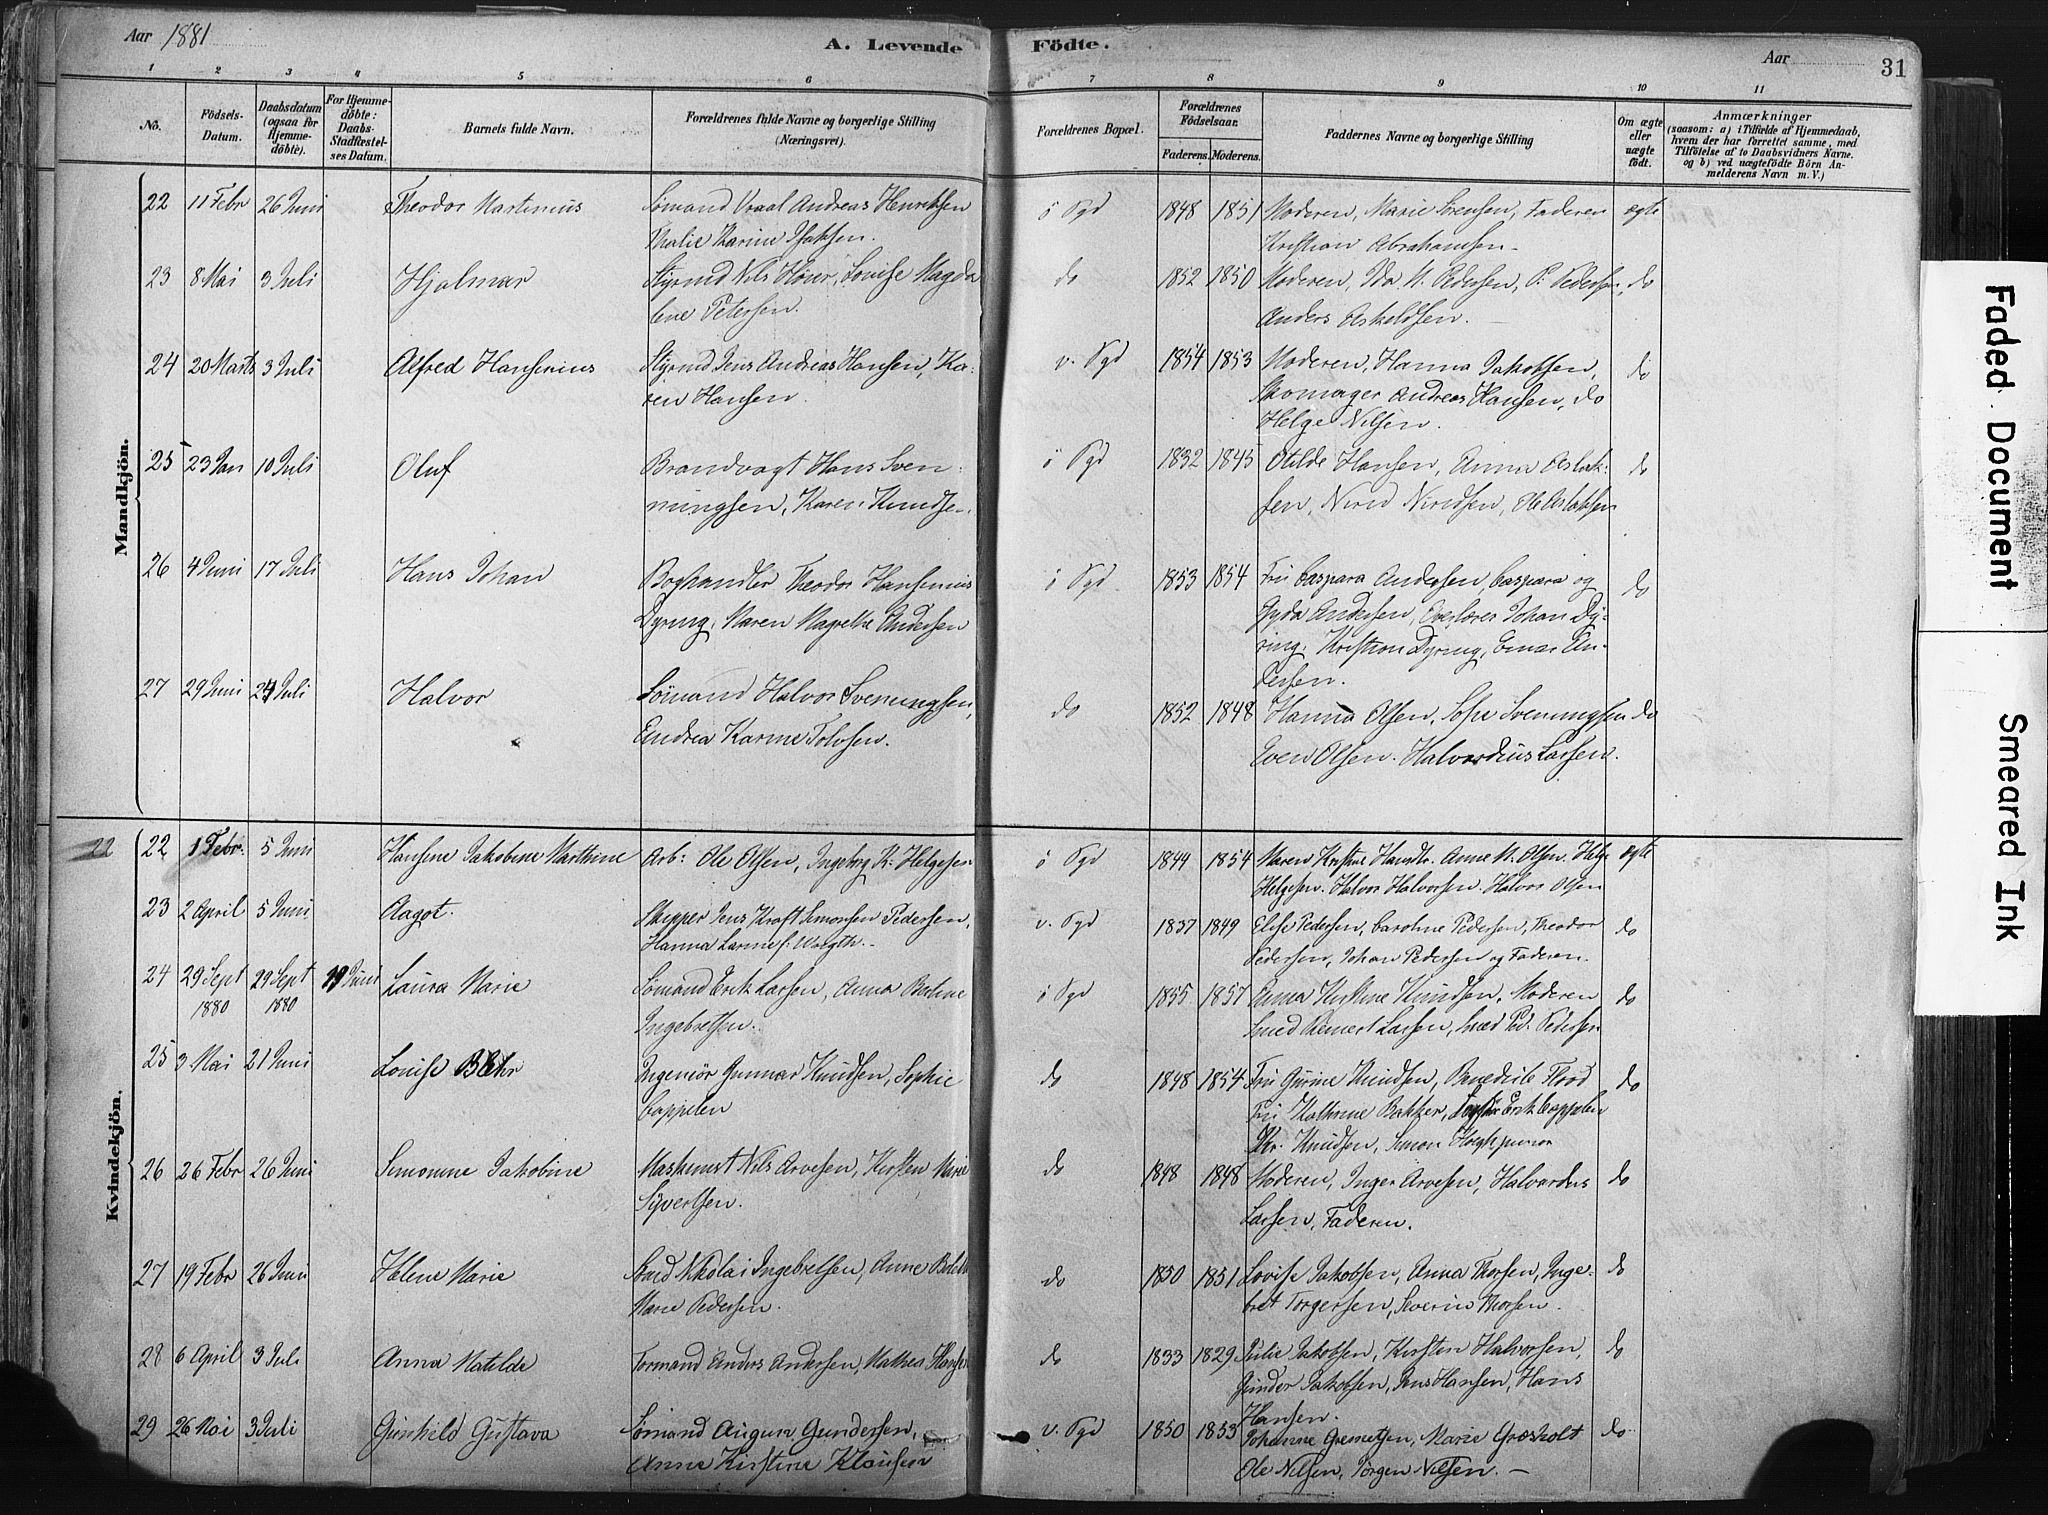 Aar 1881
A. Levende
Födte.
Aar
31
1 2 3 4 5 6 7 8 9 10 11
No.
Födsels-
Datum.
Daabsdatum
(ogsaa for
Hjemme-
döbte).
For Hjemme-
döbte:
Daabs-
Stadfæstel-
ses Datum.
Barnets fulde Navn.
Forældrenes fulde Navne og borgerlige Stilling
(Næringsvei).
Forældrenes Bopæl.
Forældrenes
Födselsaar.
Faderens. Moderens.
Faddernes Navne og borgerlige Stilling
Om ægte
eller
uægte
födt.
Anmærkninger
(saasom: a) i Tilfælde af Hjemmedaab,
hvem der har forrettet samme, med
Tilföielse af to Daabsvidners Navne.
og b) ved uægtefödte Börn An-
melderens Navn m. V.)
Mandkjön.
22 11 Febr 26 Juni Theodor Martinius Sömand Andreas Henriksen ö Sgd 1848 1851 Moderen, Marie Sörensen, Faderen ægte
Malie Karine Isaksen. Kristian Abrahamsen
23 8 Mai 3 Juli Hjalmar Styrmd Nils Höier, Lovise Magda do 1852 1850 Moderen, Ida M. Pedersen, P. Pedersen, do
lene Petersen. Anders Askeldsen.
24 20 Marts 3 Juli Alfred Hansenius Styrmd Jens Andreas Hansen, Ka- v. Sgd 1854 1853 Moderen, Hanna Jakobsen, do
ren Hansen. Skomager Andreas Hansen, do
Helge Nilsen.
25 23 Jan 10 Juli Oluf Brandvagt Hans Sven- ö Sgd 1832 1845 Otilde Hansen, Anna Aslak- do
ningsen, Karen Knudsen. sen, Ole Aslaksen
26 4 Juni 17 Juli Hans Johan Boghandler Theodor Hansenius ö Sgd 1853 1854 Fru Caspara Andersen, Caspara og do
Dyring, Maren Magrethe Andersen Gyda Andersen, Overlærer Johan Dy-
ring, Kristian Dyring, Einar An-
dersen.
27 29 Juni 24 Juli Halvor Sömand Halvor Svenningsen, do 1852 1848 Hanna Olsen, Sofie Svenningsen do
Andrea Karine Tolvsen. Even Olsen. Halvardius Larsen.
Kvindekjön.
22 22 1 Febr. 5 Juni Hansine Jakobine Marthine Arb: Ole Olsen, Ingeborg K. Helgesen ö Sgd 1844 1854 Maren Kristine Hansdtr. Anne M. Olsen. Helge ægte
Helgesen. Halvor Halvorsen. Halvor Olsen
23 2 April 5 Juni Aagot. Skipper Jens Kraft Simonsen Pedersen, v. Sgd 1837 1849 Elise Pedersen, Caroline Pedersen, Theodor do
Hanna Larine f. Pedersen, Johan Pedersen og Faderen.
24 29 Sept 29 Sept 19 Juni Laura Marie Sömand Erik Larsen, Anna ö Sgd 1855 1857 Anna Kirstine Knudsen, Moderen do
1880 1880 Ingebretsen. Smed Reinert Larsen, Ped. Pedersen
25 3 Mai 21 Juni Louise Ingeniör Gunnar Knudsen, Sophie do 1848 1854 Fru Gurine Knudsen, Benedicte Flood do
Cappelen Fru Kathrine Bakker, Erik Cappelen
Chr. Knudsen, Simon junior
26 26 Febr 26 Juni Simonine Jakobine Maskinist Nils Arvesen, Kirsten Marie do 1848 1848 Moderen, Inger Arvesen, Halvardus do
Syvertsen. Larsen, Faderen.
27 19 Febr 26 Juni Helene Marie Smed Nikolai Ingebretsen, Anne do 1850 1851 Lovise Jakobsen, Anna Thorsen, Inge- do
Marie Pedersen. bret Torgersen, Severin Thorsen.
28 6 April 3 Juli Anna Matilde Formand Anders Andersen, Mathea Hansen do 1833 1829 Julie Jakobsen, Kirsten Halvorsen, do
Gunder Jakobsen, Jens Hansen, Hans
Hansen.
29 26 Mai 3 Juli Gunhild Gustava Sömand August Gundersen, v. Sgd 1850 1853 Johanne Gremetsen, Marie Græsholt do
Anne Kirstine Klausen Ole Nilsen, Jörgen Nilsen.
Faded Document
Smeared Ink